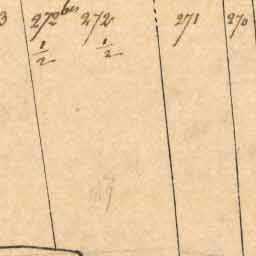 3 272 bis 272 271 270
1/2 1/2